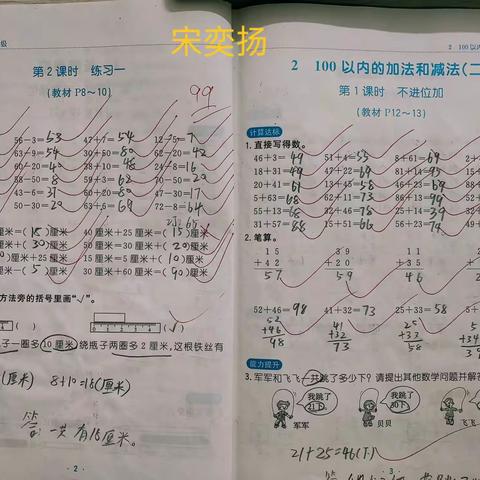 宋奕扬
级
第2课时 练习一
(教材P8～10)
99
56-3=53 47+7=54 12-5=7
63-9=54 30+50=80 62-20=42
60-20=40 38+10=48 24-8=16
58-8=50 60+20=80 70-50=20
43-6=37 47-30=17
50-30=20 63+6=69 72-8=64
厘米=(15)厘米 40厘米+25厘米=(15)厘米
65
厘米=(30)厘米 50厘米-30厘米=(20)厘米
厘米+5厘米=(10)厘米
厘米=(5)厘米 30厘米+60厘米=(90)厘米
方法旁的括号里画“√”。
( ) (√)
子一圈多10厘米,绕瓶子两圈多2厘米,这根铁丝有
(厘米) 8+10=18(厘米)
答:一共有18厘米。
·2·
2 100以内
2 100以内的加法和减法(二
第1课时 不进位加
(教材P12～13)
计算达标
1.直接写得数。
46+3=49 51+4=55 8+61=69
18+31=49 47+22=69 81+14=95
20+41=61 13+45=58 46+23=69
5+63=68 62+11=73 86+13=99
55+13=68 32+46=78 25+14=39
31+57=88 15+51=66 56+23=79
2.笔算。
15 39 2
+42 +20 +35
57 59 46
52+46=98 41+32=73 25+33=58
52 41 25
+46 +32 +33
98 73 58
能力提升
3.军军和飞飞一共跳了多少下?请提出其他数学问题并解答
我跳了 我跳了
21下 30下
军军 贝贝 飞飞
21+25=46(下)
·3·